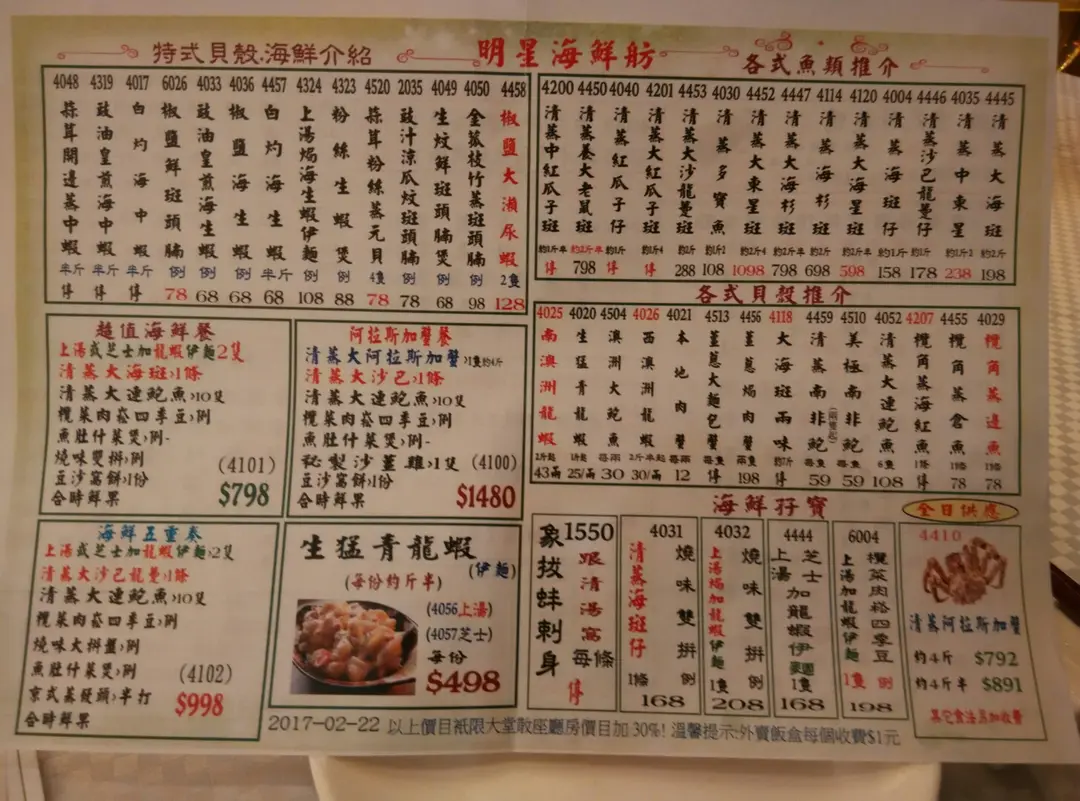 明星海鮮舫
特式貝殼.海鮮介紹
4048 蒜茸開邊蒸中蝦 半斤 停
4319 豉油皇煎海中蝦 半斤 停
4017 白灼海中蝦 半斤 停
6026 椒鹽鮮斑頭腩 例 78
4033 豉油皇煎海生蝦 例 68
4036 椒鹽海生蝦 例 68
4457 白灼海生蝦 半斤 68
4324 上湯焗海生蝦伊麵 例 108
4323 粉絲生蝦煲 例 88
4520 蒜茸粉絲蒸元貝 4隻 78
2035 豉汁涼瓜炆斑頭腩 例 78
4049 生炆鮮斑頭腩煲 例 68
4050 金菰枝竹蒸斑頭腩 例 98
4458 椒鹽大瀨尿蝦 2隻 128
各式魚類推介
4200 清蒸中紅瓜子斑 約1斤半 停
4450 清蒸養大老鼠斑 約1斤半 798
4040 清蒸紅瓜子仔 約1斤 停
4201 清蒸大紅瓜子斑 約1斤4 停
4453 清蒸大沙龍躉斑 約2斤 288
4030 清蒸多寶魚 約1斤2 108
4452 清蒸大東星斑 約2斤4 1098
4447 清蒸大海杉斑 約2斤半 798
4114 清蒸海杉斑 約2斤 698
4120 清蒸大海星斑 約2斤 598
4004 清蒸海斑仔 約1斤 158
4446 清蒸沙巴龍躉仔 約1斤 178
4035 清蒸中東星 約1斤2 238
4445 清蒸大海斑 約2斤 198
各式貝殼推介
4025 南澳洲龍蝦 2斤起 43/兩
4020 生猛青龍蝦 1斤起 25/兩
4504 澳洲大鮑魚 每兩 30
4026 西澳洲龍蝦 2斤半起 30/兩
4021 本地肉蟹 每兩 12
4513 薑蔥大麵包蟹 每隻 停
4456 薑蔥焗肉蟹 兩隻 198
4118 大海斑兩味 約2斤 停
4459 清蒸南非鮑 (兩隻起) 每隻 59
4510 美極南非鮑 每隻 59
4052 清蒸大連鮑魚 6隻 108
4207 欖角蒸海紅魚 1條 停
4455 欖角蒸倉魚 1條 78
4029 欖角蒸邊魚 1條 78
超值海鮮餐
上湯或芝士加龍蝦伊麵2隻
清蒸大海斑›1條
清蒸大連鮑魚›10隻
欖菜肉崧四季豆›例
魚肚什菜煲›例-
燒味雙拼›例 (4101)
豆沙窩餅›份
合時鮮果 $798
阿拉斯加蟹餐
清蒸大阿拉斯加蟹›1隻約4斤
清蒸大沙巴›1條
清蒸大連鮑魚›10隻
欖菜肉崧四季豆›例
魚肚什菜煲›例-
秘製沙薑雞›1隻 (4100)
豆沙窩餅›份
合時鮮果 $1480
海鮮五重奏
上湯或芝士加龍蝦伊麵›2隻
清蒸大沙巴龍躉›1條
清蒸大連鮑魚›10隻
欖菜肉崧四季豆›例
燒味大拼盤›例
魚肚什菜煲›例 (4102)
京式蒸饅頭›半打 $998
合時鮮果
生猛青龍蝦
(伊麵)
(每份約斤半)
(4056上湯)
(4057芝士)
每份
$498
海鮮孖寶
全日供應
1550 象拔蚌刺身 跟清湯窩 每條 停
4031 清蒸海斑仔 1條 燒味雙拼 例 168
4032 上湯焗加龍蝦伊麵 1隻 燒味雙拼 例 208
4444 上湯芝士加龍蝦伊麵 1隻 168
6004 上湯加龍蝦伊麵 1隻 欖菜肉崧四季豆 例 198
4410
清蒸阿拉斯加蟹
約4斤 $792
約4斤半 $891
其它食法另加收費
2017-02-22 以上價目祇限大堂散座廳房價目加30%! 溫馨提示:外賣飯盒每個收費$1元